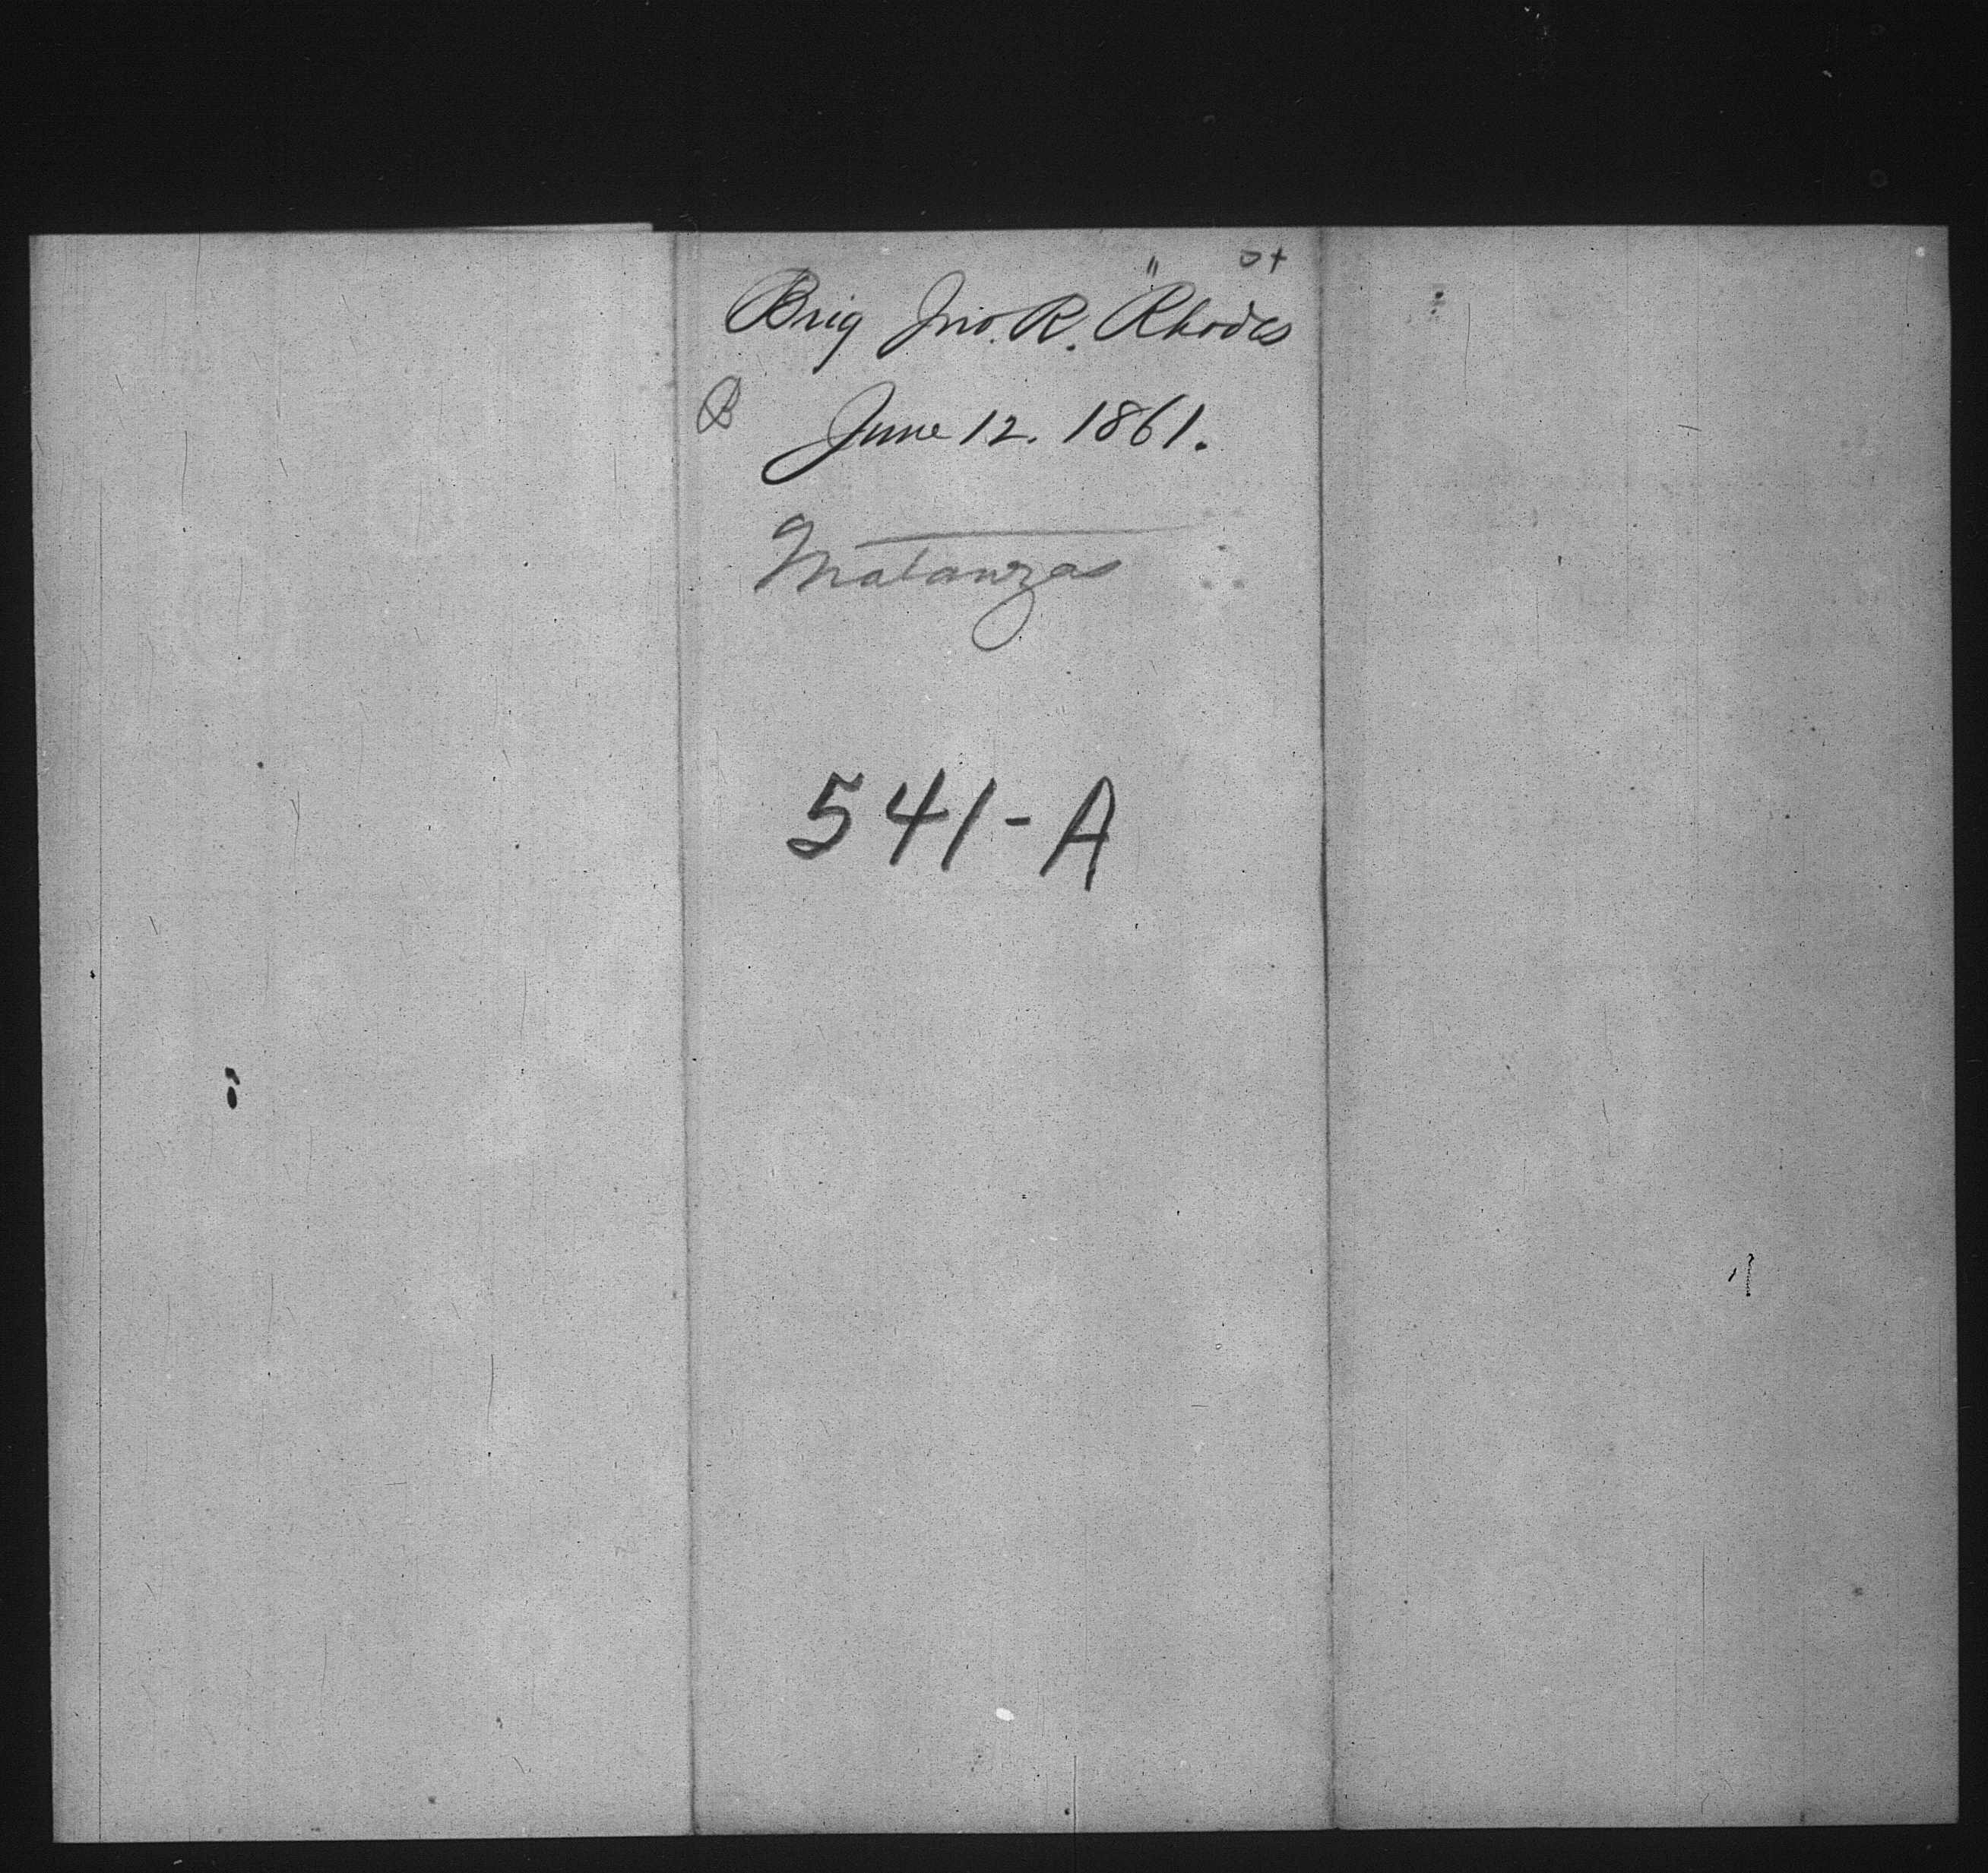 Brig Jno. R. "Rhodes
B June 12. 1861.
Matanzas
541-A